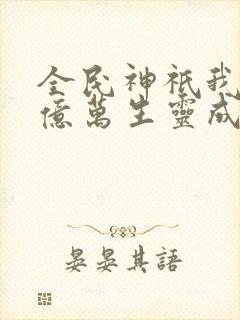 全民神祇我
億萬生靈成
晏晏其語